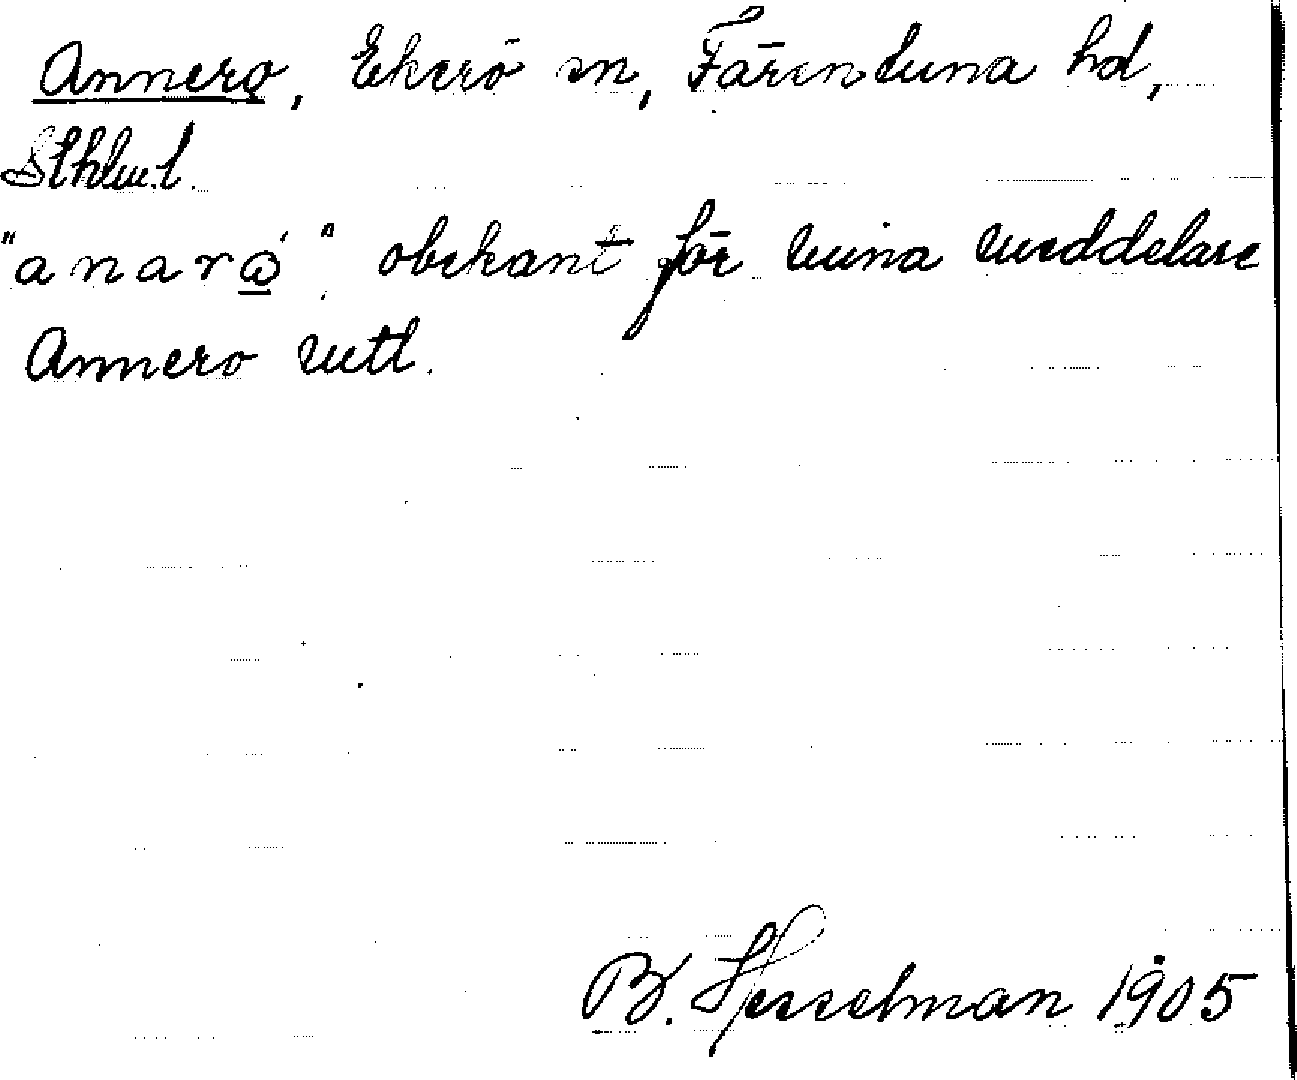 Annero, Ekerö sn, Färentuna hd,
Sthlm.l.
"anarå" obekant för mina meddelare
Annero uttl.
B. Hesselman 1905